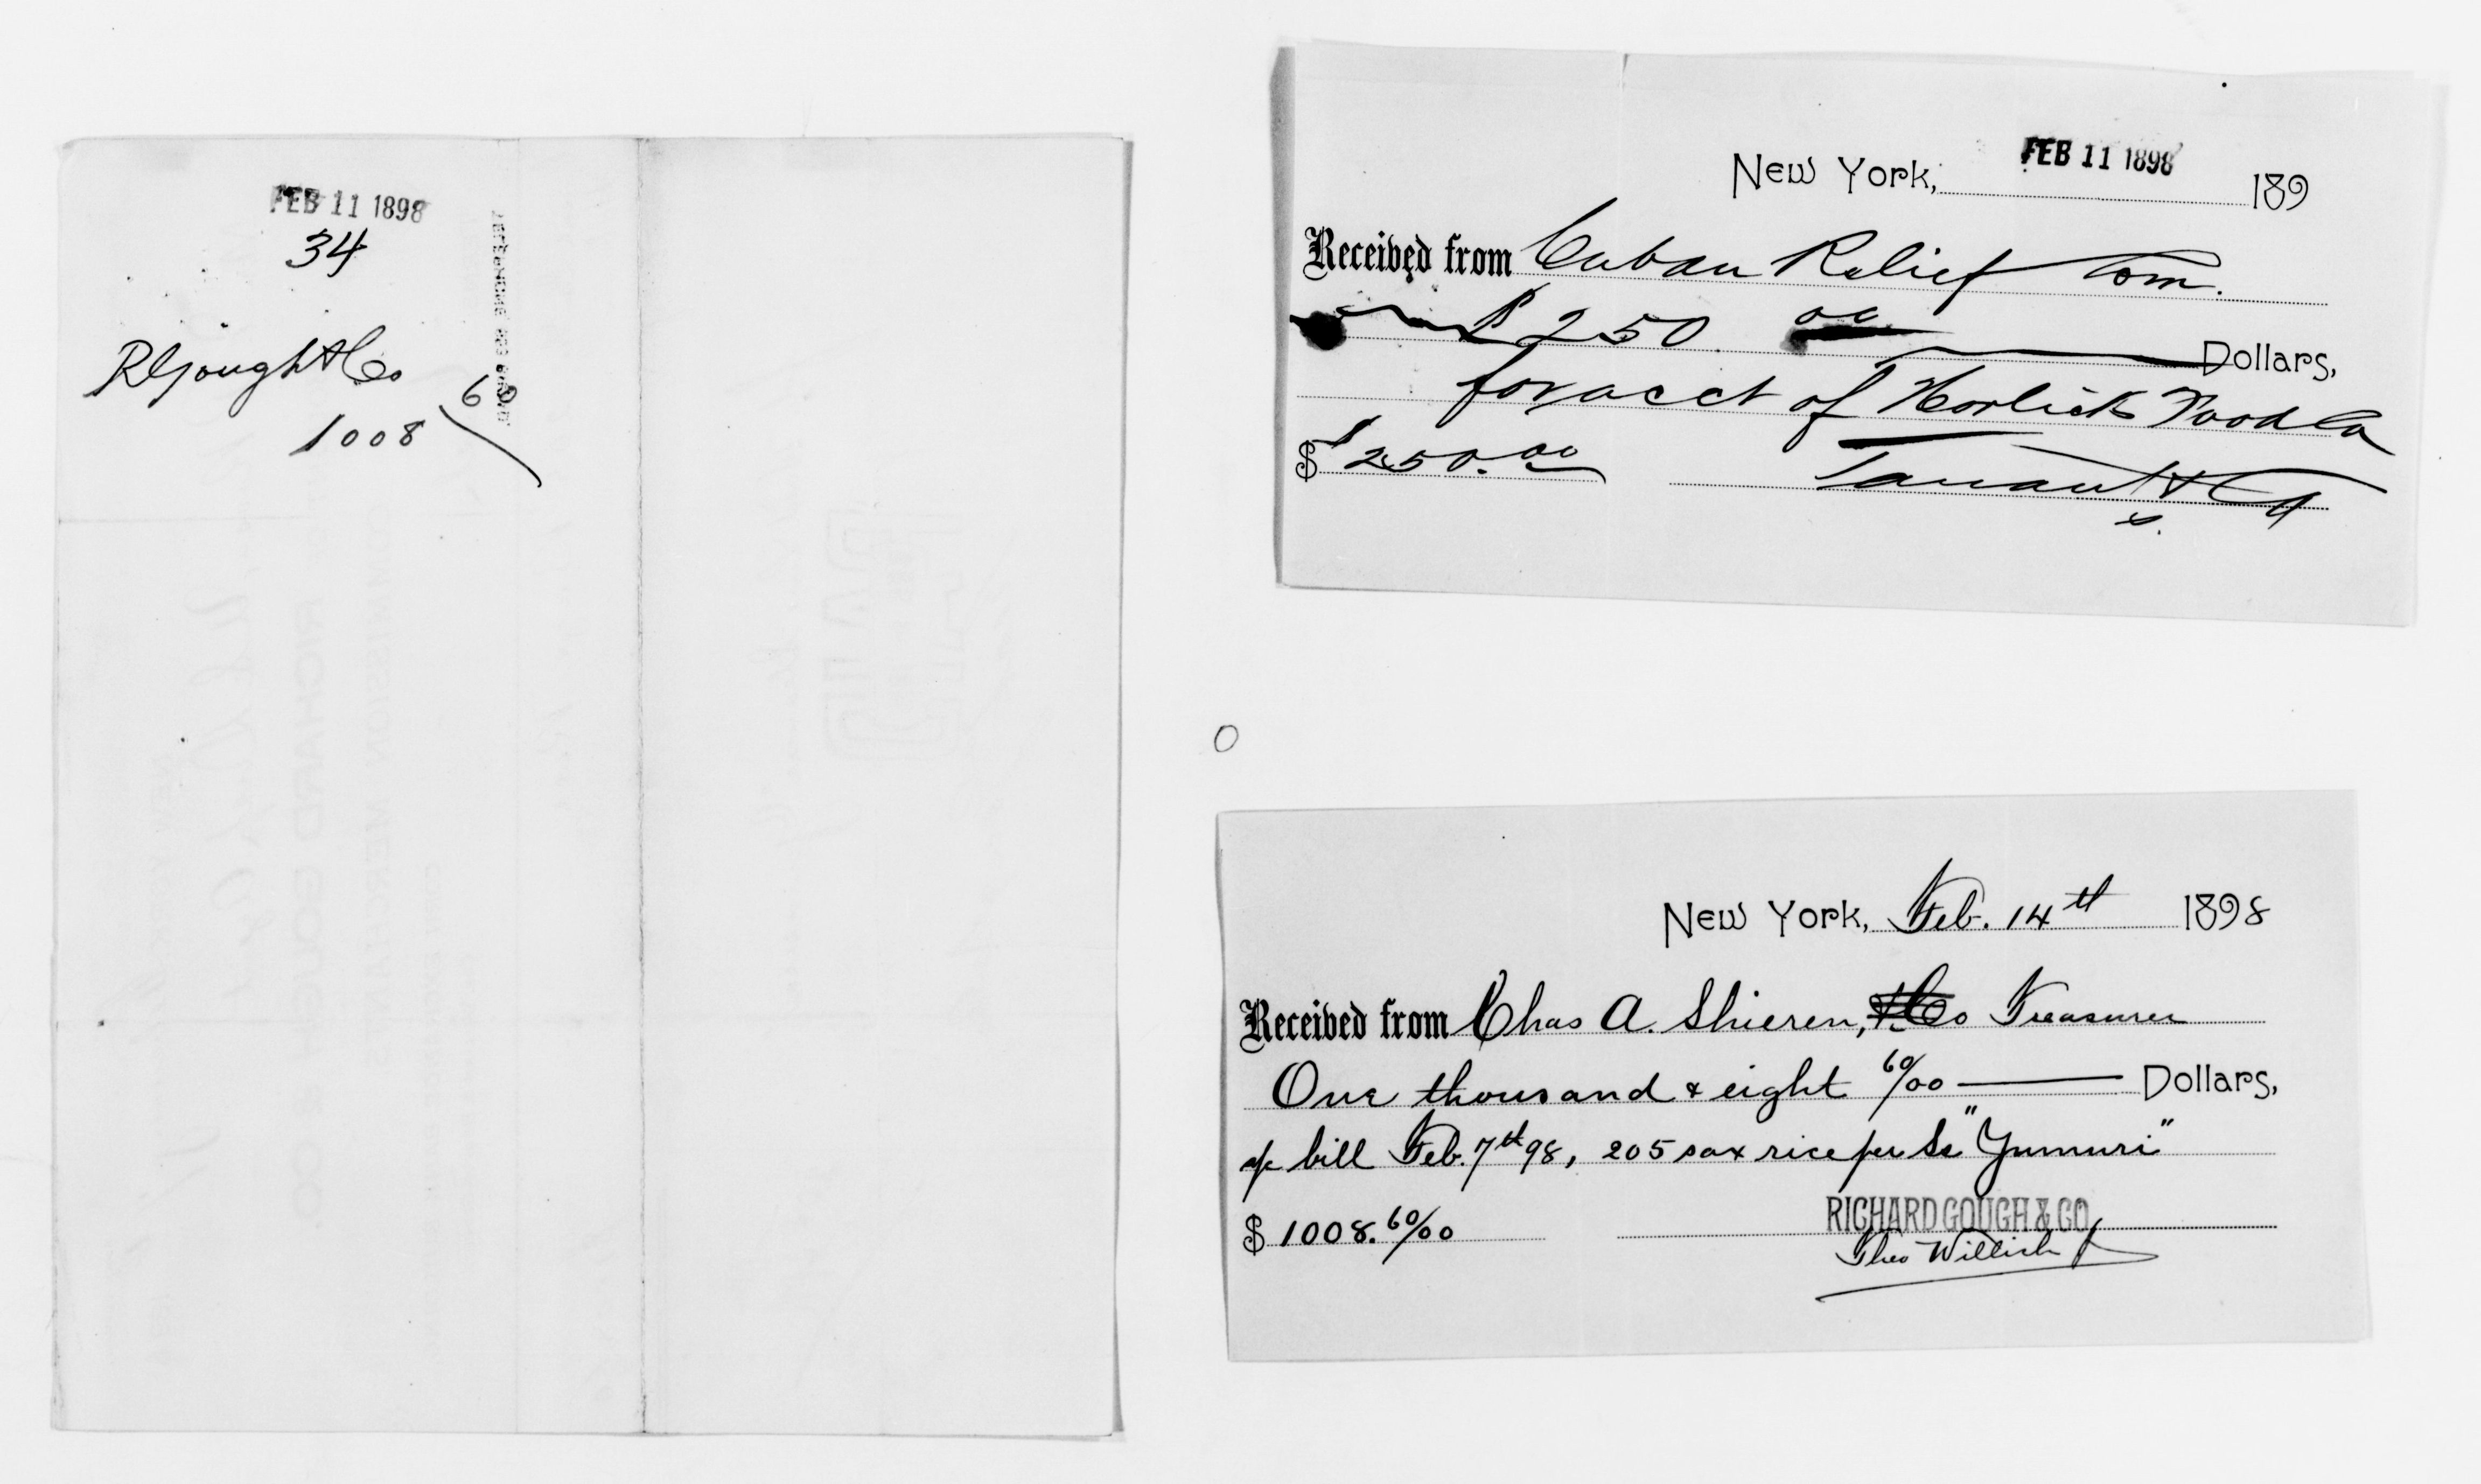 FEB 11 1898
34
R Gough & Co
60
1008
New York, FEB 11 1898 189
Received from Cuban Relief Com.
$250 00 Dollars,
for acct of Horlicks Food Co
$ 250.00 & Co
New York, Feb. 14th 1898
Received from Chas A. Shieren, & Co Treasurer
One thousand & eight 60/00 Dollars,
a/c bill Feb. 7th 98, 205 sax rice per Ss "Yumuri"
RICHARD GOUGH & CO
$ 1008.60/00
Theo Willich